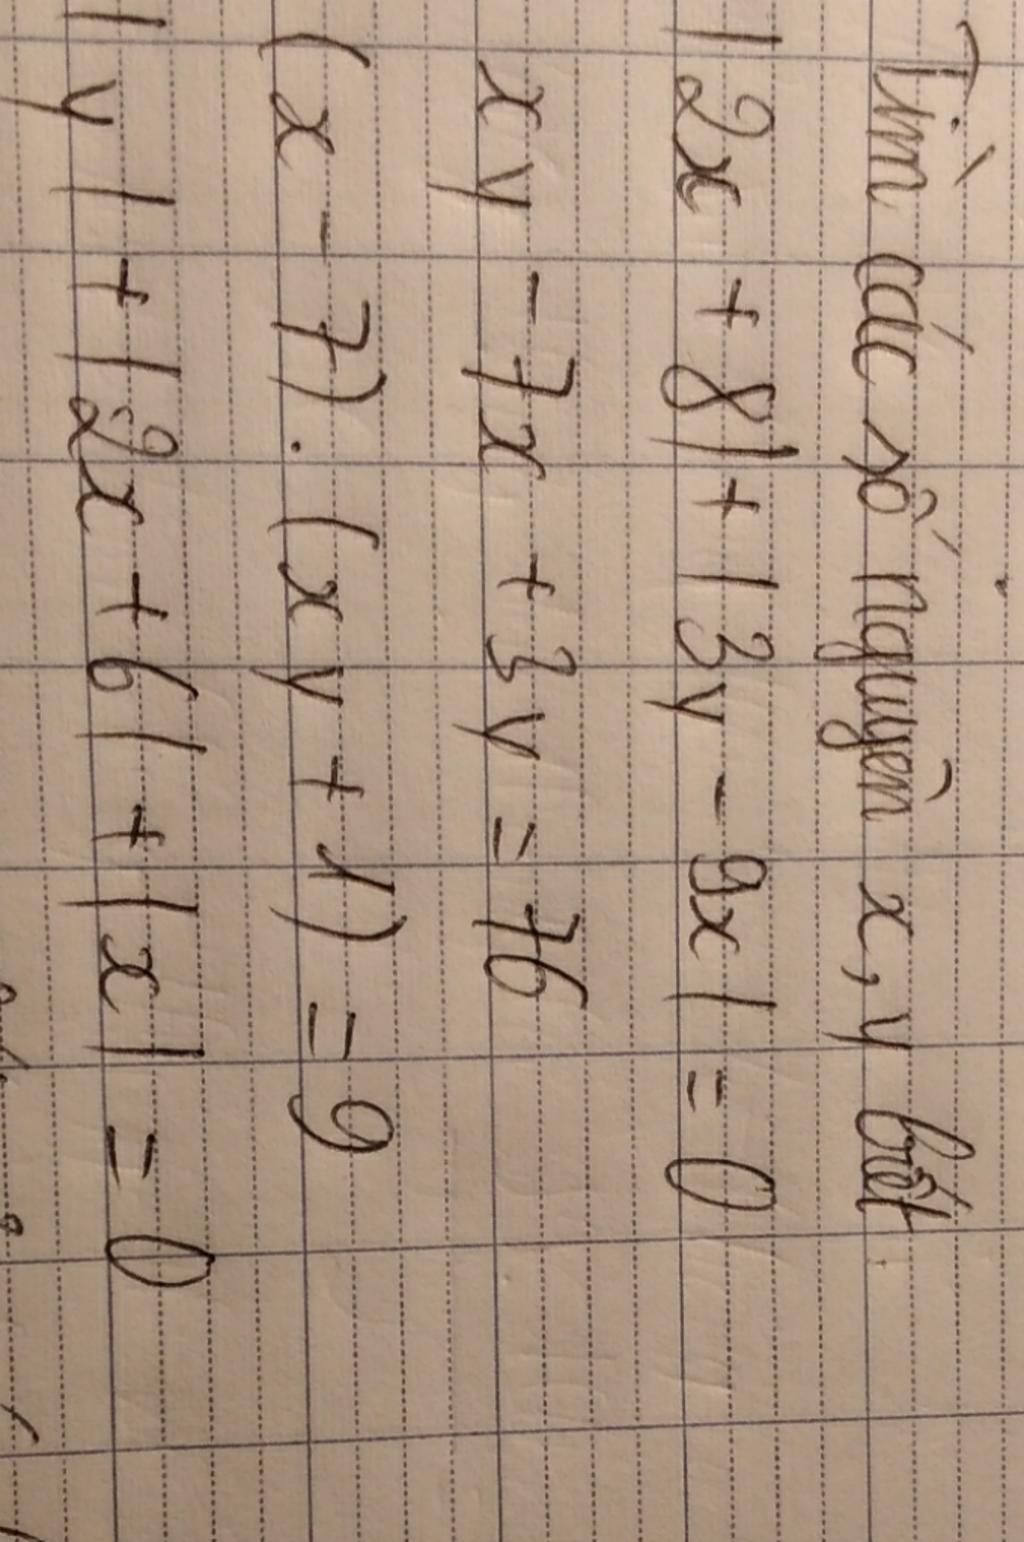 Tìm các số nguyên x, y biết
|2x + 8| + |3y - 9x| = 0
xy - 7x + 3y = 76
(x - 7) . (xy + 1) = 9
|y| + |2x + 6| + |x| = 0